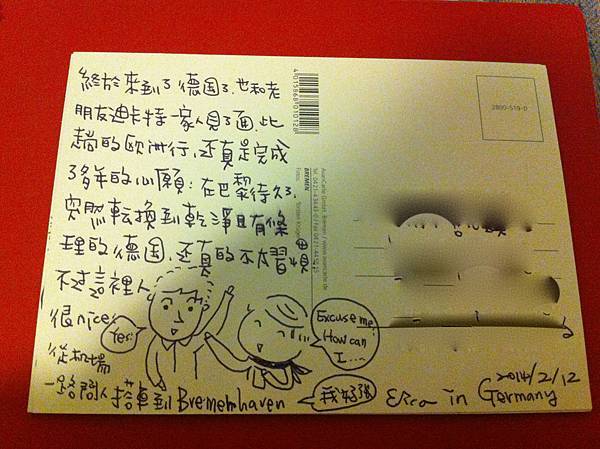 終於來到了德国了.也和老
朋友迪卡特一家人見了面.此
趟的欧洲行,还真是完成
了多年的心願:在巴黎待久了.
突然轉換到乾淨且有條
理的德国,还真的不太習慣
不过這裡人
很nice,
從机場
一路問人搭車到Bremenhaven
Yes.
Excuse me!
How can
I....
我好強
Erca in Germany
2014/2/12
4 015868 010128
AvanCarte GmbH, Bremen / www.avancarte.de
BREMEN
2800-519-D